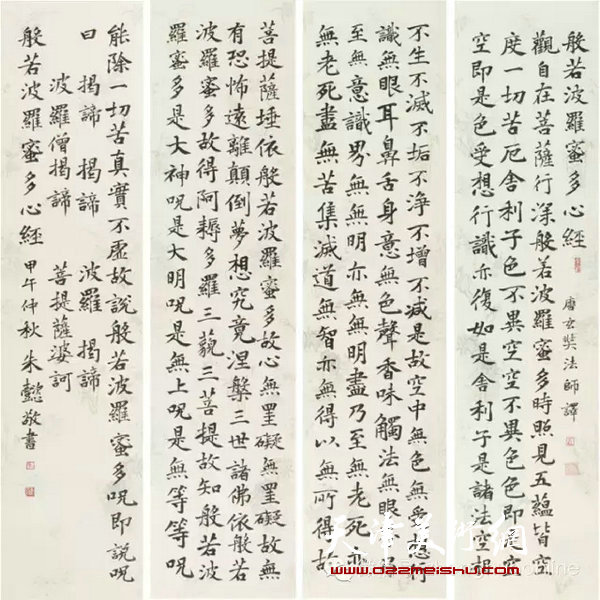 般若波羅蜜多心經 唐玄奘法師譯
觀自在菩薩行深般若波羅蜜多時照見五蘊皆空
度一切苦厄舍利子色不異空空不異色色即是空
空即是色受想行識亦復如是舍利子是諸法空相
不生不滅不垢不淨不增不減是故空中無色無受想行
識無眼耳鼻舌身意無色聲香味觸法無眼界乃
至無意識界無無明亦無無明盡乃至無老死亦
無老死盡無苦集滅道無智亦無得以無所得故
菩提薩埵依般若波羅蜜多故心無罣礙無罣礙故無
有恐怖遠離顛倒夢想究竟涅槃三世諸佛依般若
波羅蜜多故得阿耨多羅三藐三菩提故知般若波
羅蜜多是大神呪是大明呪是無上呪是無等等呪
能除一切苦真實不虛故說般若波羅蜜多呪即說呪
曰 揭諦 揭諦 波羅 揭諦
波羅僧揭諦 菩提薩婆訶
般若波羅蜜多心經 甲午仲秋 朱懿敬書
天津美術網
www.022meishu.com
online